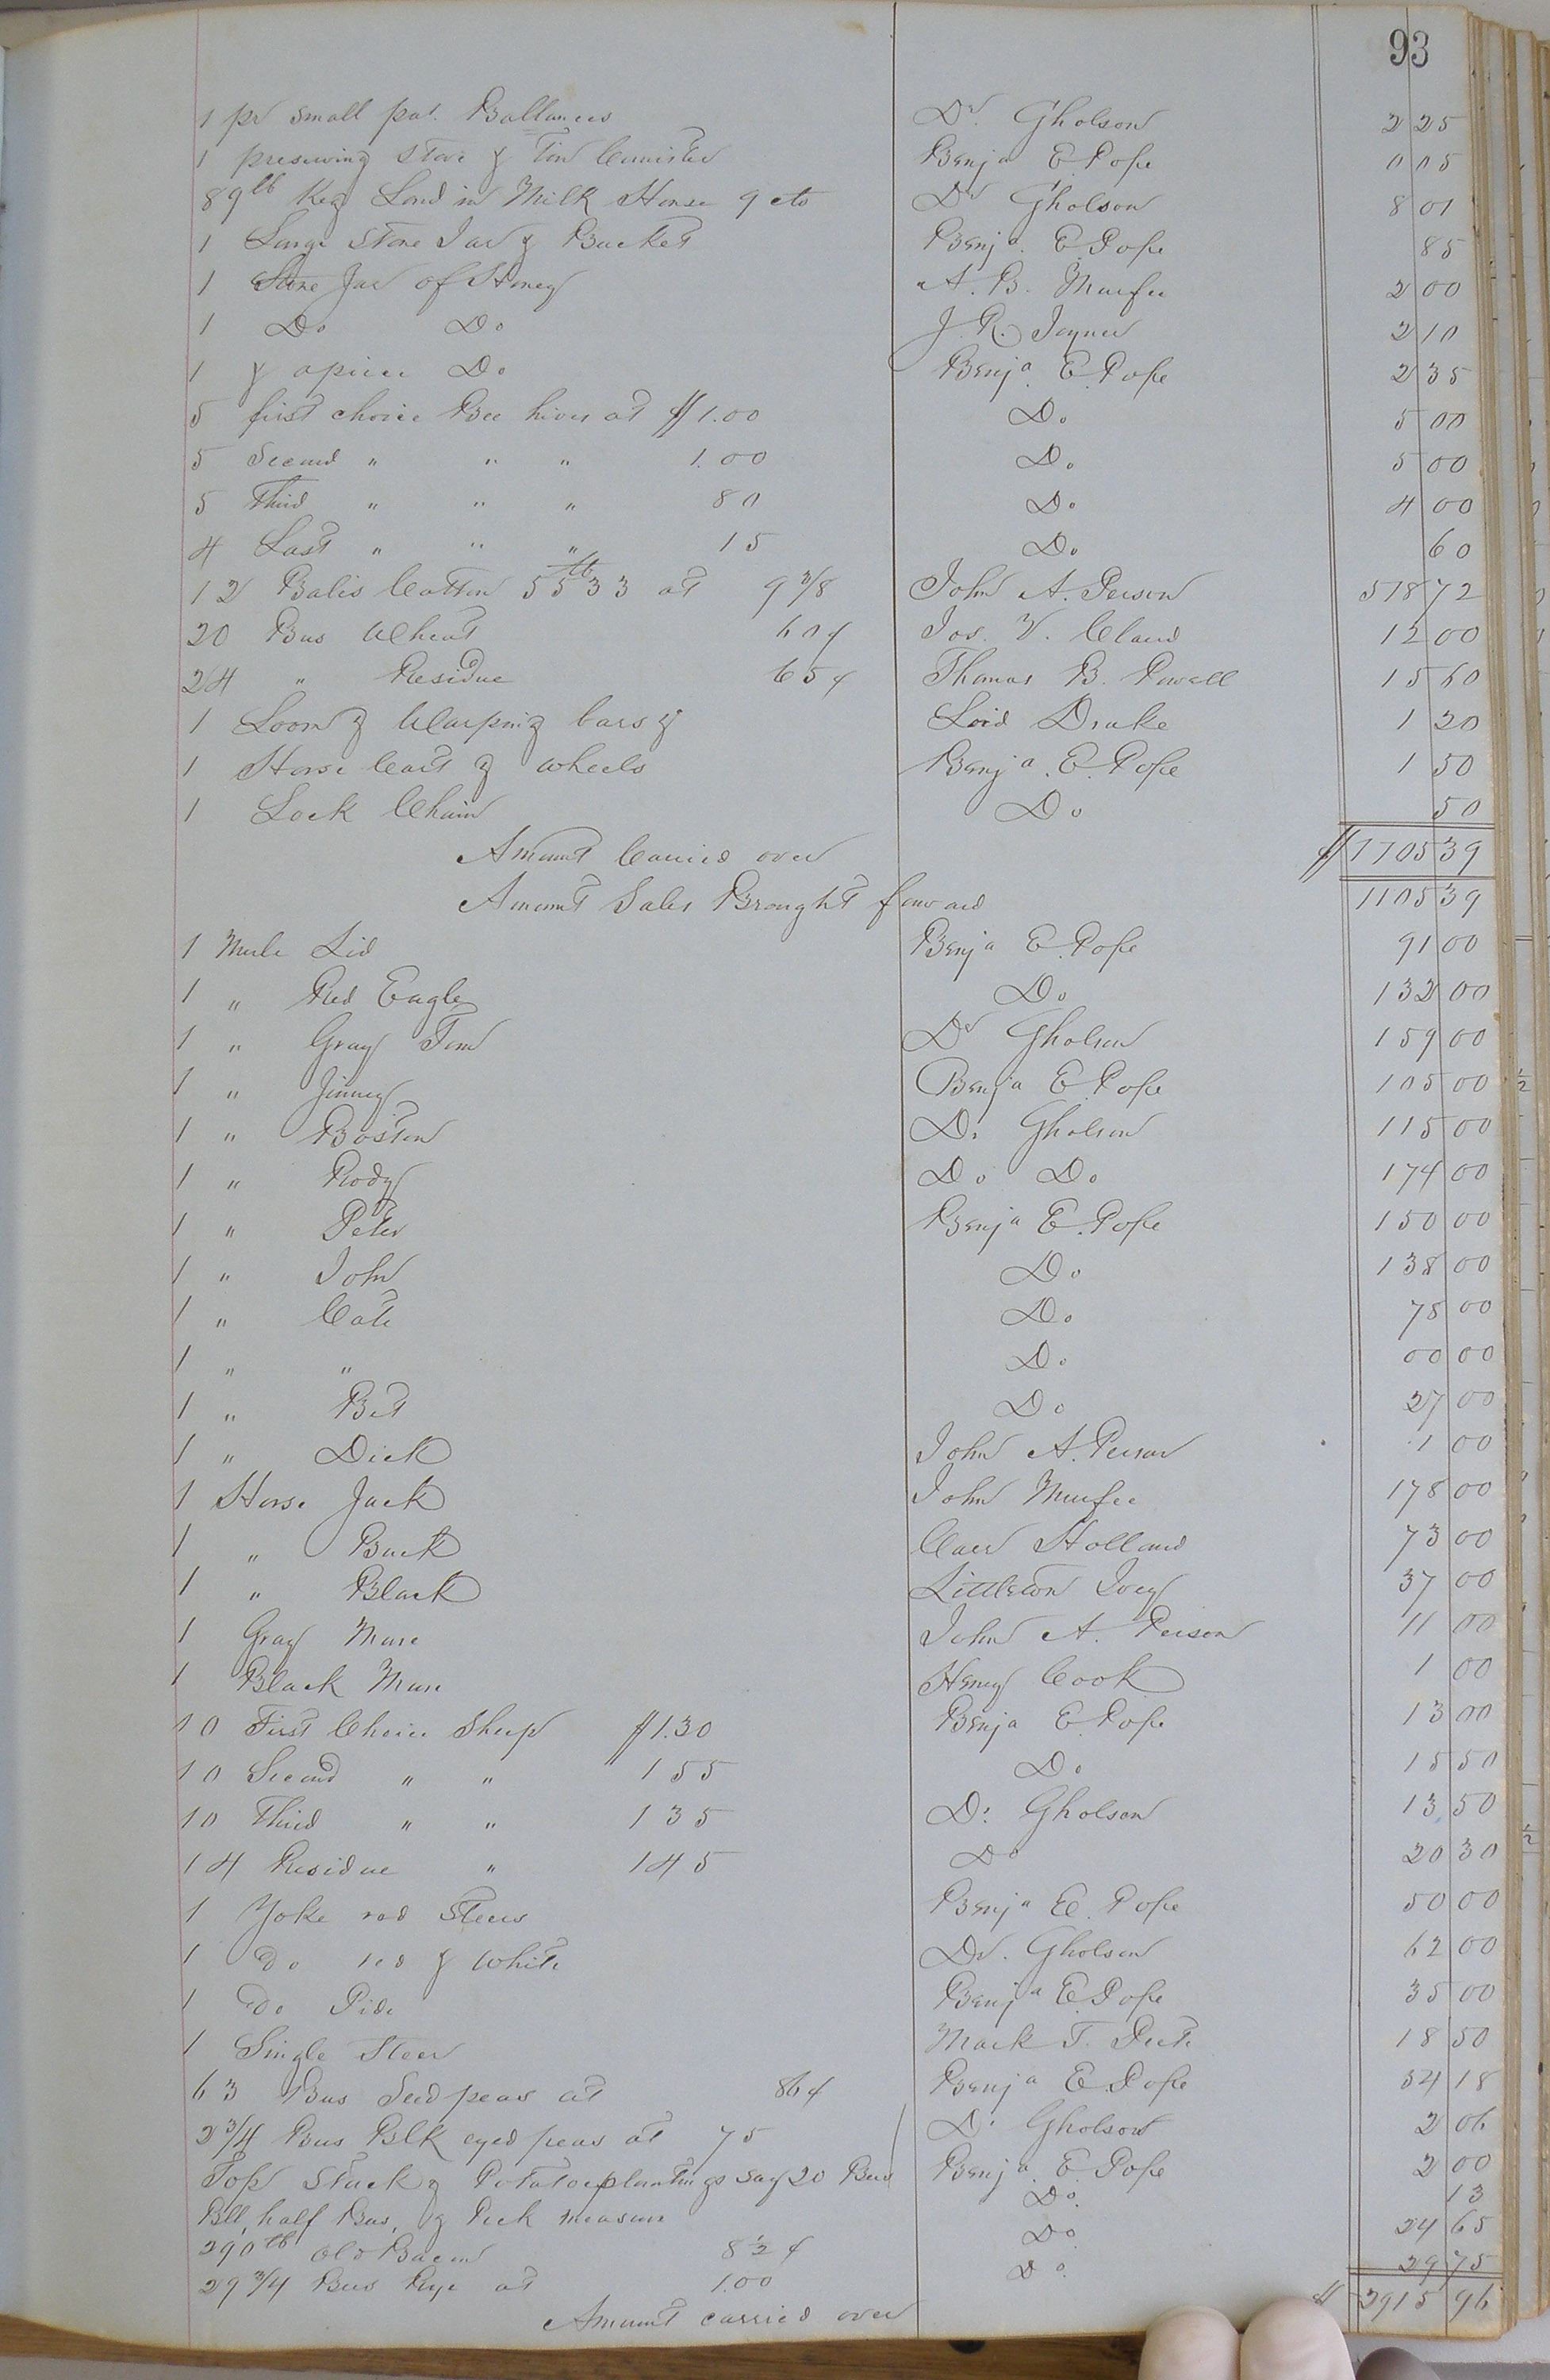 93
1 pr small pat. Ballances Dr. Gholson 2 25
1 preserving Stove & Tin Cannister Benja E. Pope 0 05
89lb Keg Lard in Milk House 9 cts Dr Gholson 8 01
1 Large Stone Jar & Bucket Benja. E. Pope 85
1 Stone Jar of Honey A. B. Murfee 2 00
1 Do Do J. R. Joyner 2 10
1 & apiece Do Benja. E. Pope 2 35
5 first choice Bee hives at $1.00 Do 5 00
5 Second " " " 1.00 Do 5 00
5 Third " " " 80 Do 4 00
4 Last " " " 15 Do 60
12 Bales Cotton 5533 lb at 9 3/8 John A. Person 518 72
20 Bus Wheat 60¢ Jos. V. Claud 12 00
24 " Residue 65¢ Thomas B. Powell 15 60
1 Loom & Warping bars & Drake 1 20
1 Horse Cart & wheels Benja. E. Pope 1 50
1 Lock Chain Do 50
Amount Carried over $1105 39
Amount Sales Brought forward 1105 39
1 Mule Lid Benja E. Pope 91 00
1 " Red Eagle Do 132 00
1 " Gray Tom Dr Gholson 159 00
1 " Jinney Benja E. Pope 105 00
1 " Boston Dr Gholson 115 00
1 " Rody Do Do 174 00
1 " Peter Benja E. Pope 150 00
1 " John Do 138 00
1 " Cate Do 75 00
1 " " Do 00 00
1 " Bet Do 27 00
1 " Dick John A. Person 1 00
1 Horse Jack John Murfee 178 00
1 " Buck Carr Holland 73 00
1 " Black Littleton Ivey 37 00
1 Gray Mare John A. Person 11 00
1 Black Mare Henry Cook 1 00
10 First Choice Sheep $1.30 Benja E. Pope 13 00
10 Second " " 1 55 Do 15 50
10 Third " " 1 35 Dr Gholson 13 50
14 Residue " 1 45 Do 20 30
1 Yoke red Steers Benja E. Pope 50 00
1 Do red & White Dr. Gholson 62 00
1 Do Pide Benja E. Pope 35 00
1 Single Steer Mark T. 18 50
63 Bus Seed peas at 86¢ Benja E. Pope 54 18
2 3/4 Bus Blk eyed peas at 75 Dr Gholson 2 06
Top Stack & Potatoe plantings say 20 Bus Benja. E. Pope 2 00
Bll, half Bus, & Peck measure Do. 13
290lb Old Bacon 8 1/2¢ Do 24 65
29 3/4 Bus Rye at 1.00 Do. 29 75
Amount carried over $ 2915 96